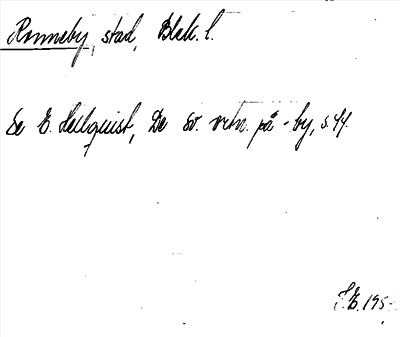 Ronneby, stad, Blek. l.
Se E. Hellquist, De sv. ortn. på -by, s. 44.
S.E. 195